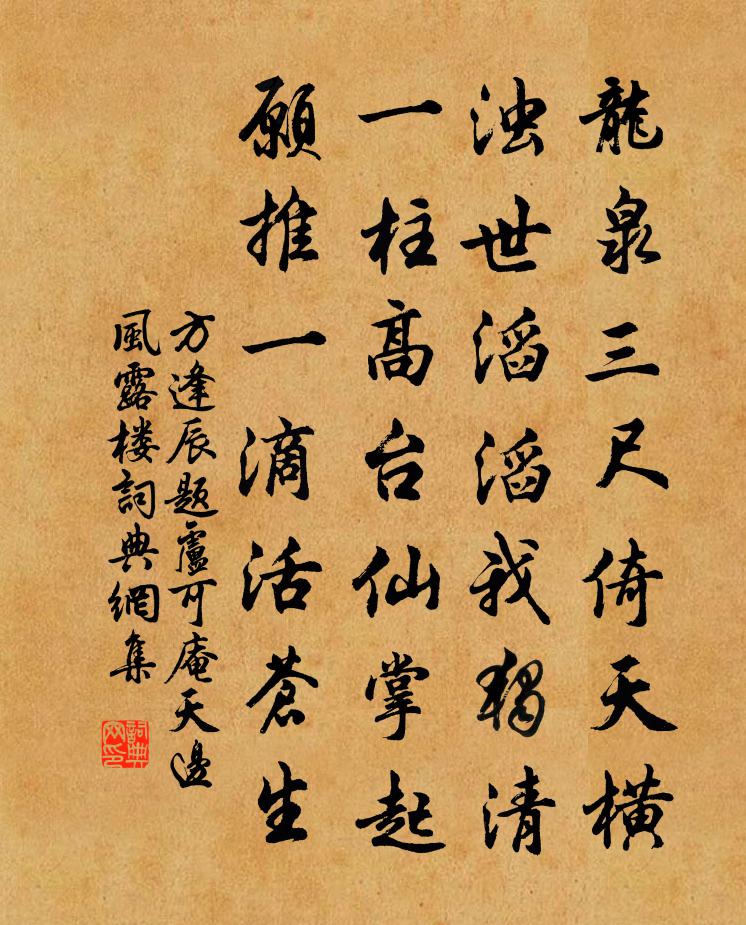 龍泉三尺倚天橫
浊世滔滔我獨清
一柱高台仙掌起
願推一滴活蒼生
方逢辰题盧可庵天邊
風露楼詞典網集
詞典
网印